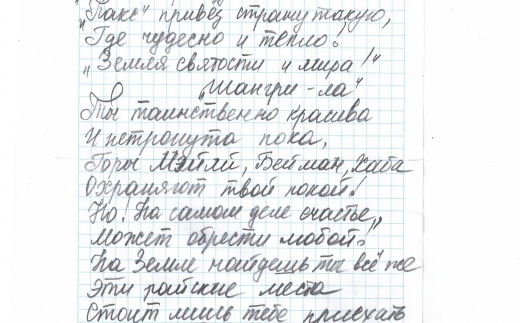 "Пакс" привёз страну такую,
"Где чудесно и тепло!
"Земля святости и мира!"
"Шангри-ла"
Ты таинственно красива
И нетронута пока,
Горы Мэйли, Бейман, Хаба
Охраняют твой покой!
Но! На самом деле счастье,,
Может обрести любой?"
На Земле найдешь ты всё же
Эти райские места
Стоит лишь тебе приехать